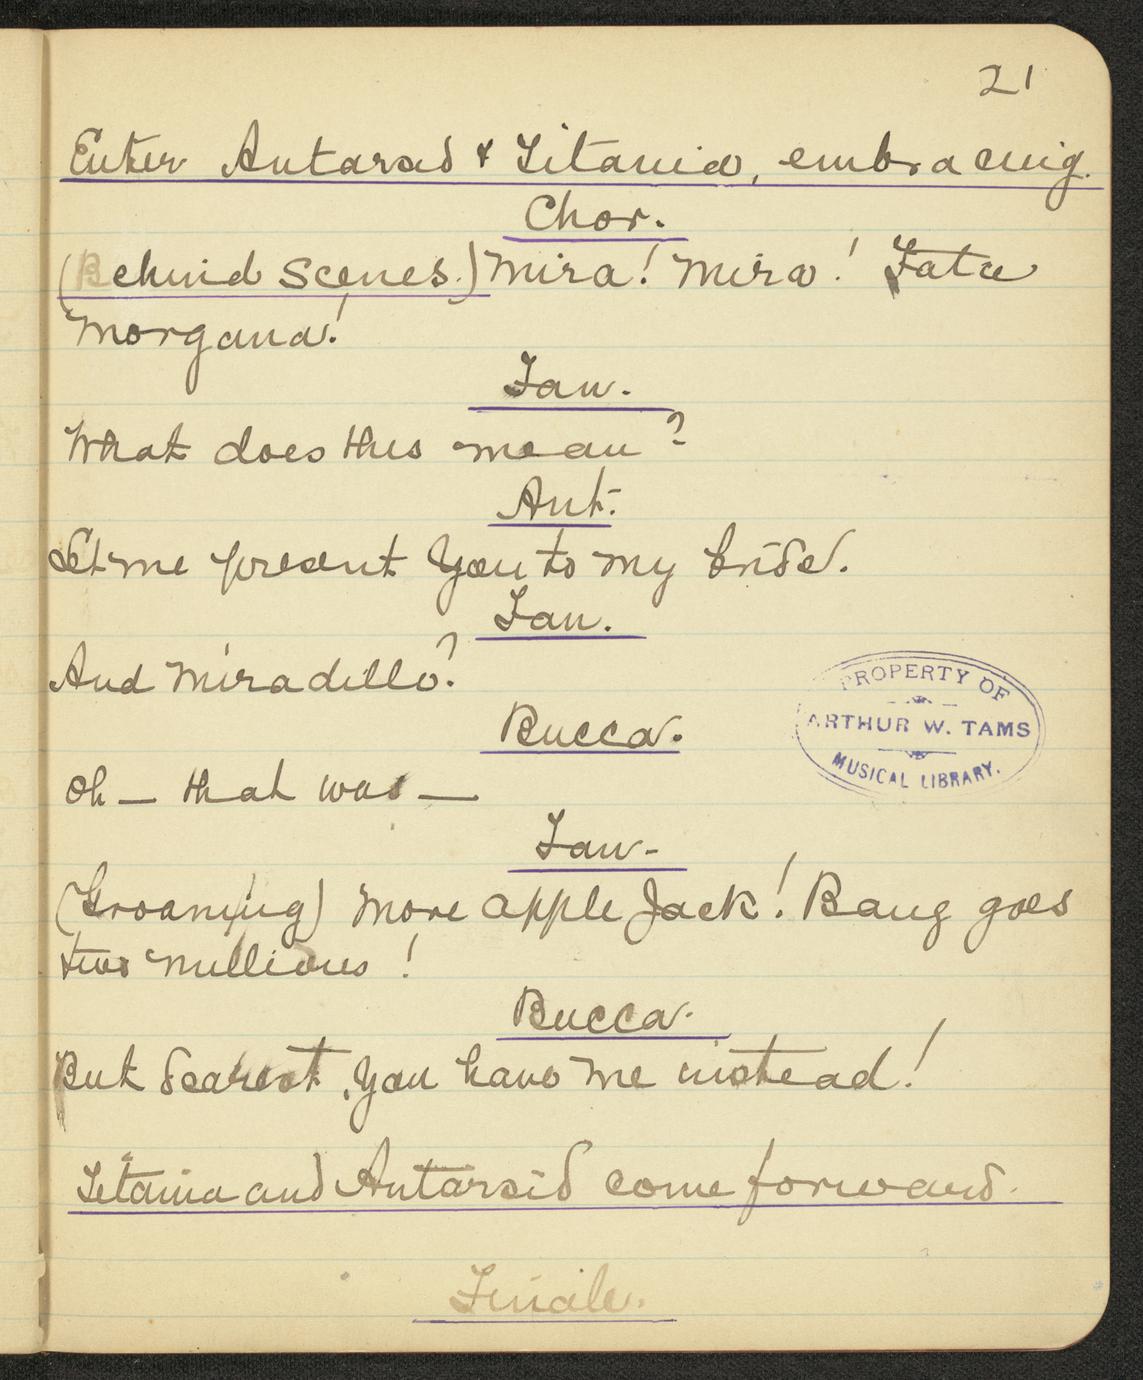 21
Enter Antarsid & Titania, embracing.
Chor.
(Behind Scenes.) Mira! Mira! Fata
Morgana!
Fan.
What does this mean?
Ant.
Let me present you to my bride.
Fan.
And Miradillo?
Bucca.
Oh — that was —
Fan.
(Groaning) More apple Jack! Bang goes
two millions!
Bucca.
But dearest, you have me instead!
Titania and Antarsid come forward.
Finale.
PROPERTY OF
ARTHUR W. TAMS
MUSICAL LIBRARY.